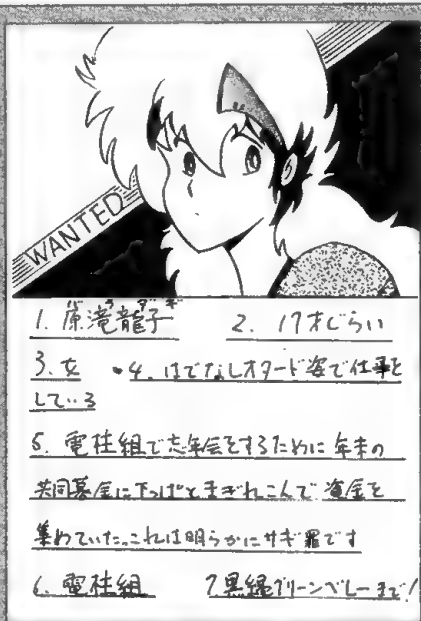 WANTED
1. 原滝龍子 2. 17才じらい
3. 女 4. はでなレオタード姿で仕事を
している
5. 電柱組で忘年会をするために年末の
共同募金に下っぱとまぎれこんで資金を
集めていた。これは明らかにサギ罪です
6. 電柱組 7. 黒縁グリーンベレーまで!